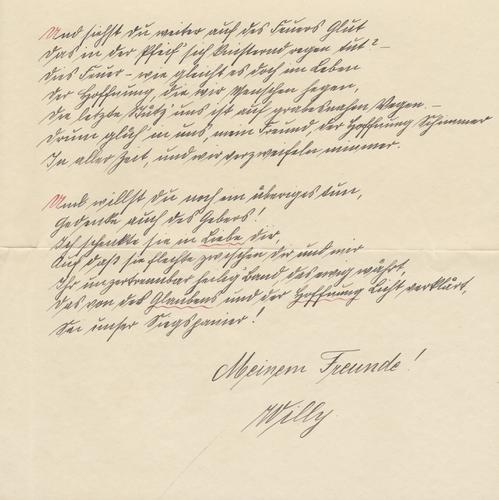 Und siehst du weiter auch des Feuers Glut
Das in der Pfeif' sich knisternd regen tut? –
Dies Feuer – wie gleicht es doch im Leben
Der Hoffnung, die wir Menschen hegen,
Die letzte Stütz' uns ist auf grabesnahen Wegen. –
Drum glüh' in uns, mein Freund, der Hoffnung Schimmer
In aller Zeit, und wir verzweifeln nimmer.
Und willst du noch ein übriges tun,
Gedenke auch des Gebers!
Ich schenkte sie in Liebe dir,
Auf daß sie flechte zwischen dir und mir
Ihr unzertrennbar heilig Band das ewig währt,
Das von des Glaubens und der Hoffnung Licht verklärt,
Sei unser Siegspanier!
Meinem Freunde!
Willy.